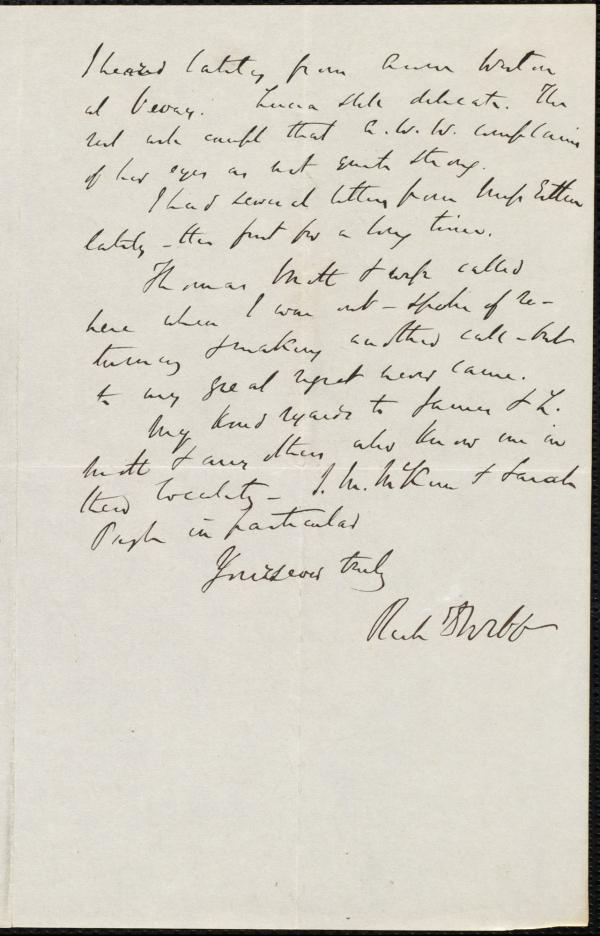 I heard lately from Anne Weston
at Vevay. Lucia still delicate. The
rest well except that A. W. W. complains
of her eyes as not quite strong.
I had several letters from Miss Estlin
lately - the first for a long time.
Thomas Mott & wife called
here when I was out - spoke of re-
turning & making another call - but
to my great regret never came.
My kind regards to James & L.
Mott & any others who know me in
their locality - J. M. McKim & Sarah
Pugh in particular
Yours ever truly
Rich D Webb